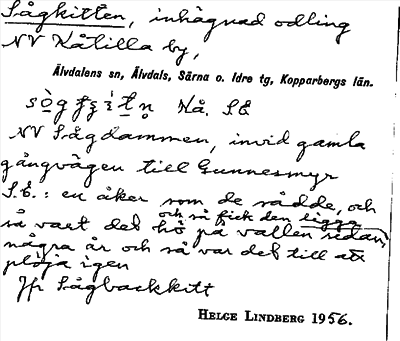 Sågkitten, inhägnad odling
NV Kåtilla by,
Älvdalens sn, Älvdals, Särna o. Idre tg, Kopparbergs län.
Nå. S.E
NV Sågdammen, invid gamla
gångvägen till Gunnesmyr
S.E.: en åker som de sådde, och
och så fick den ligga
så vart det hö på vallen sedan,
några år och så var det till att
plöja igen
Jfr Sågbackkitt
HELGE LINDBERG 1956.